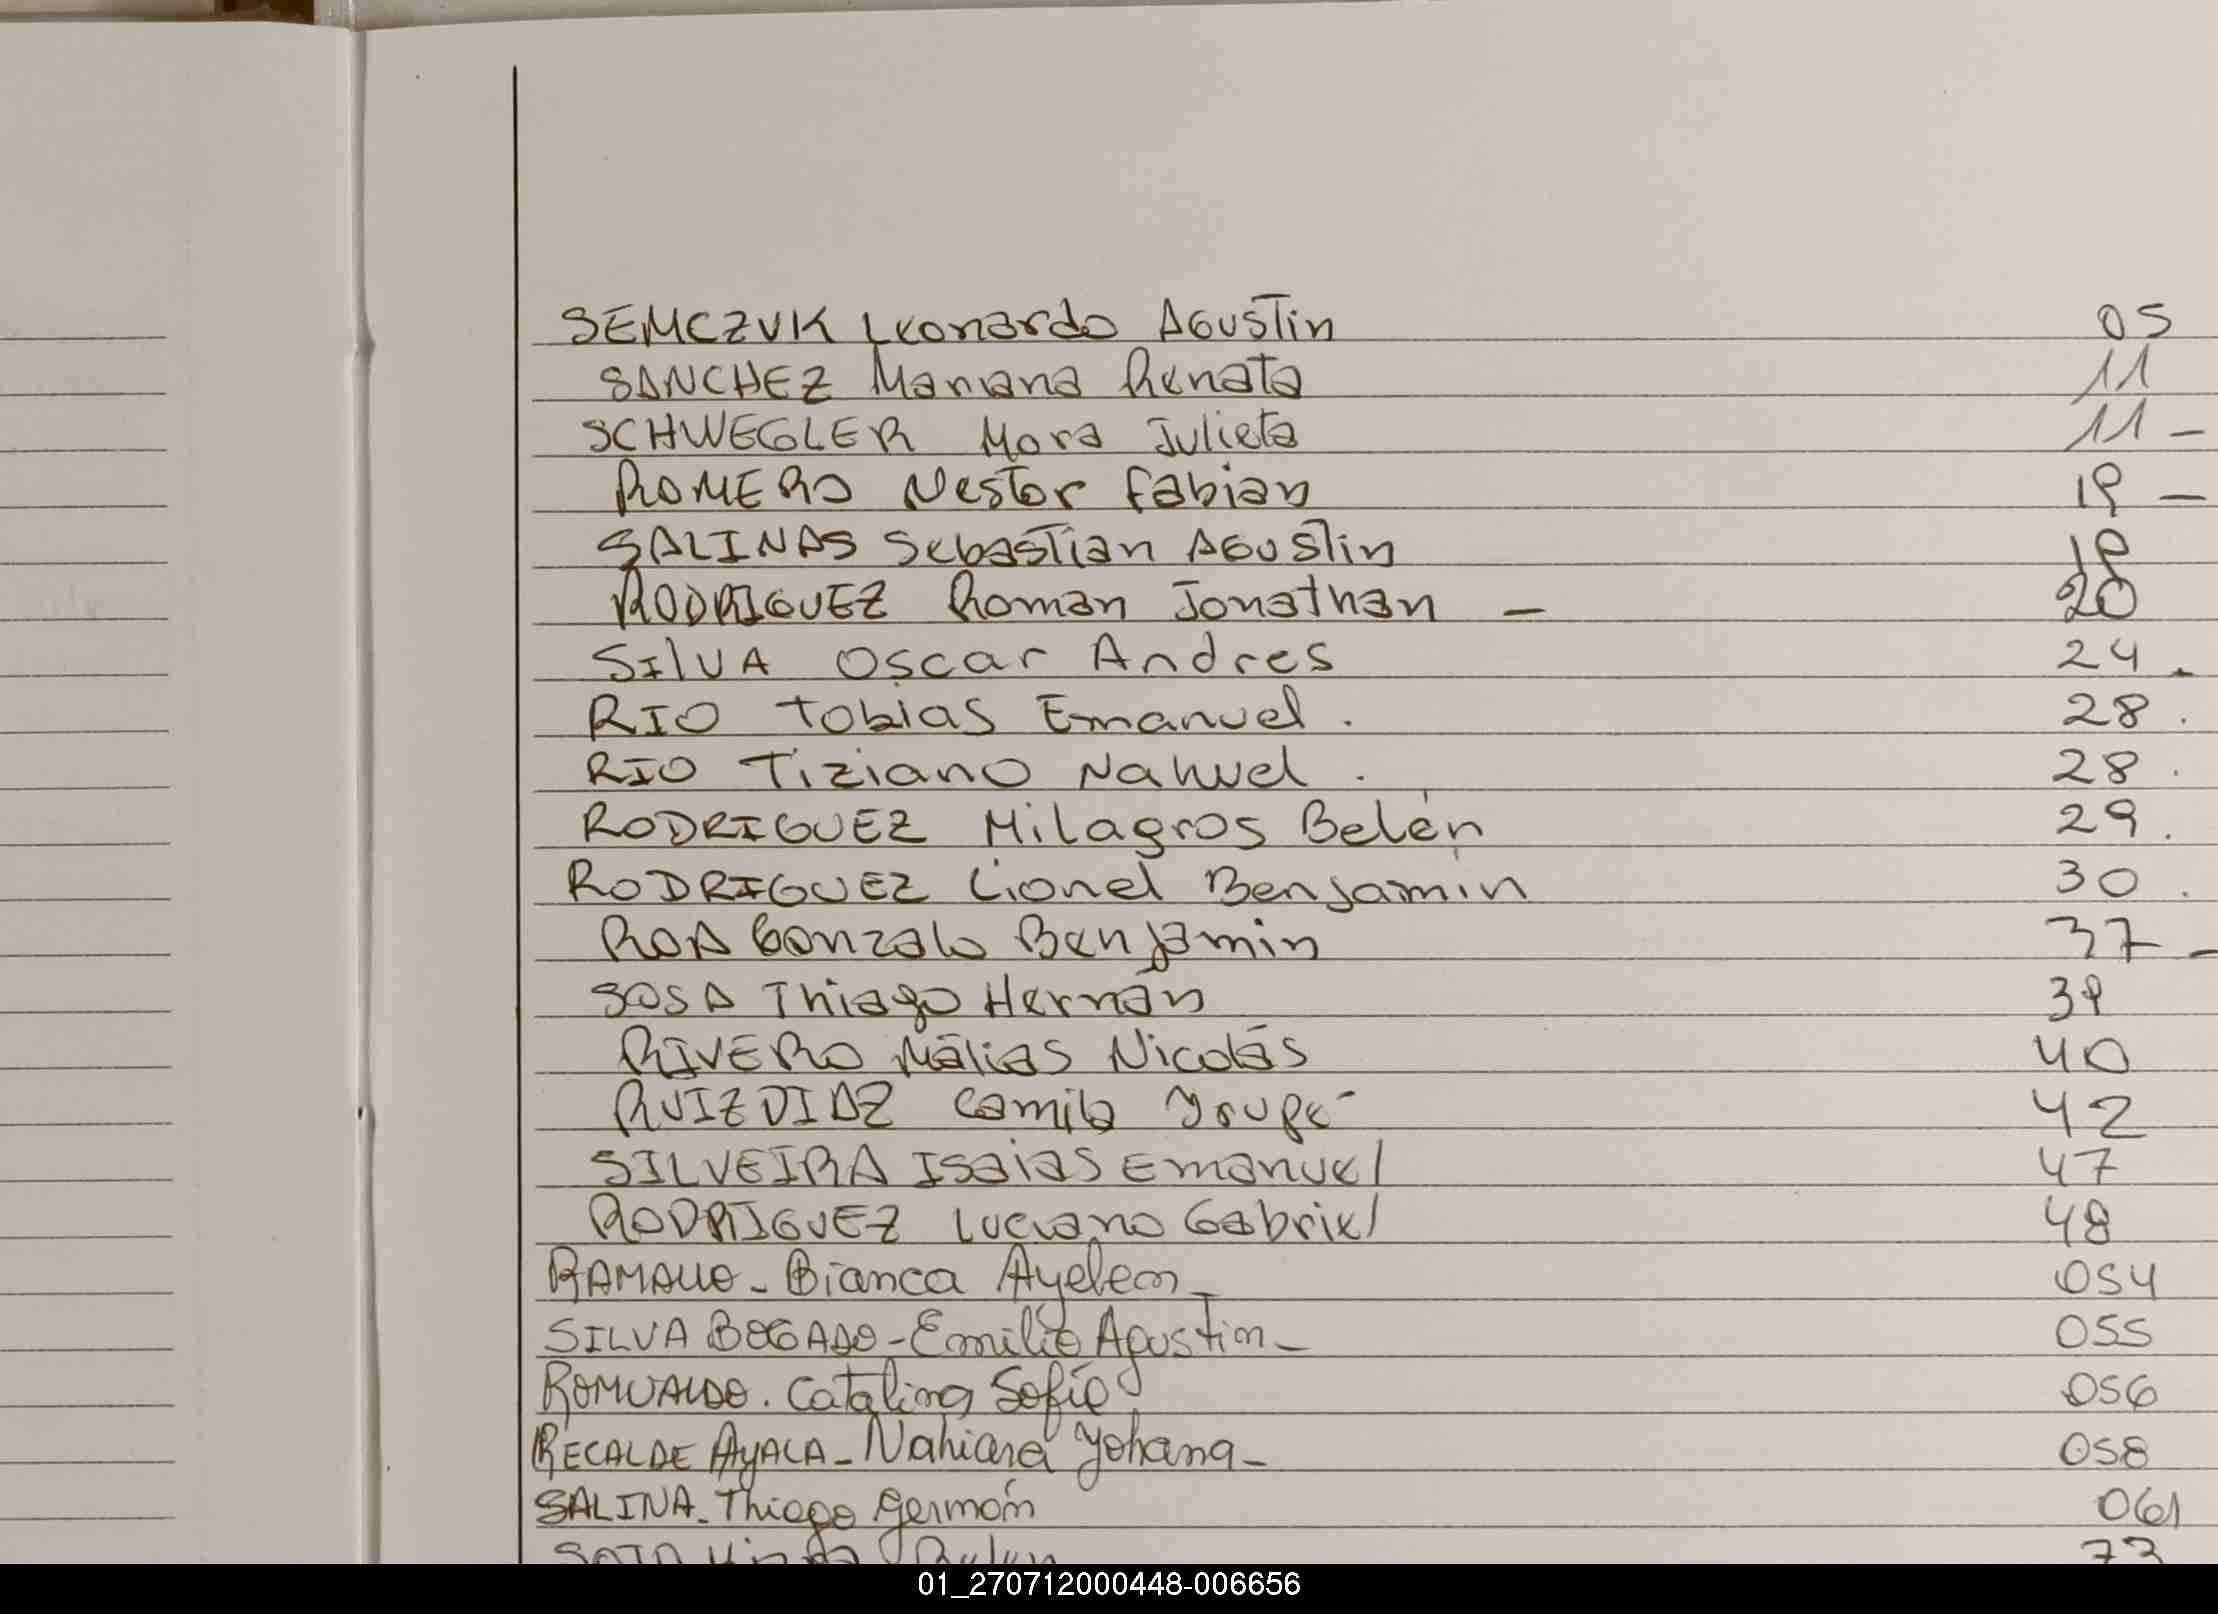 SEMCZUK Leonardo Agustin 05
SANCHEZ Mariana Renata 11
SCHWEGLER Mora Julieta 11 -
ROMERO Nestor Fabian 19 -
SALINAS Sebastian Agustin 19
RODRIGUEZ Roman Jonathan - 20
SILVA Oscar Andres 24 .
RIO Tobias Emanuel . 28 .
RIO Tiziano Nahuel . 28 .
RODRIGUEZ Milagros Belén 29 .
RODRIGUEZ Lionel Benjamin 30 .
ROA Gonzalo Benjamin 37 -
SOSA Thiago Hernán 39
RIVERO Matias Nicolás 40
RUIZ DIAZ Camila Yrupé 42
SILVEIRA Isaias Emanuel 47
RODRIGUEZ Luciano Gabriel 48
RAMALLO - Bianca Ayelen - 054
SILVA BOGADO - Emilio Agustin - 055
ROMUALDO . Catalina Sofía 056
RECALDE AYALA - Nahiara Yohana - 058
SALINA - Thiago Germán 061